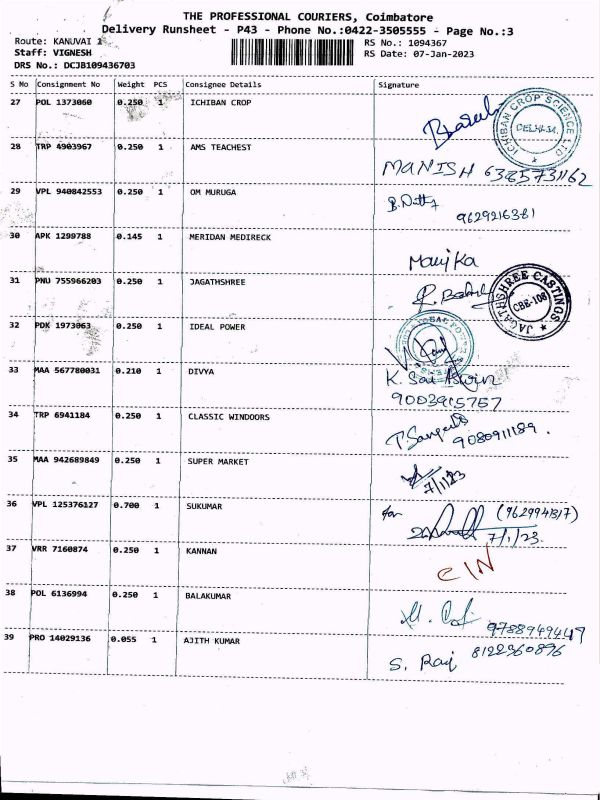 THE PROFESSIONAL COURIERS, Coimbatore
Delivery Runsheet - P43 - Phone No.:0422-3505555 - Page No.:3
Route: KANUVAI 2
Staff: VIGNESH
DRS No.: DCJB109436703
RS No.: 1094367
RS Date: 07-Jan-2023
S No Consignment No Weight PCS Consignee Details Signature
27 POL 1373060 0.250 1 ICHIBAN CROP
ICHIBAN CROP SCIENCE LTD
28 TRP 4903967 0.250 1 AMS TEACHEST MANISH 6385731162
29 VPL 940842553 0.250 1 OM MURUGA 9629216381
30 APK 1299788 0.145 1 MERIDAN MEDIRECK Manjka
31 PNU 755966203 0.250 1 JAGATHSHREE
JAGATHSHREE CASTINGS CBE-108
32 PDK 1973063 0.250 1 IDEAL POWER
33 MAA 567780031 0.210 1 DIVYA K. Sai Aswin
9003915757
34 TRP 6941184 0.250 1 CLASSIC WINDOORS 9080911189.
35 MAA 942689849 0.250 1 SUPER MARKET 7/1/23
36 VPL 125376127 0.700 1 SUKUMAR for (9629941317)
7/1/23.
37 VRR 7160874 0.250 1 KANNAN CIN
38 POL 6136994 0.250 1 BALAKUMAR 9788949449
39 PRO 14029136 0.055 1 AJITH KUMAR S. Raj 8122360896